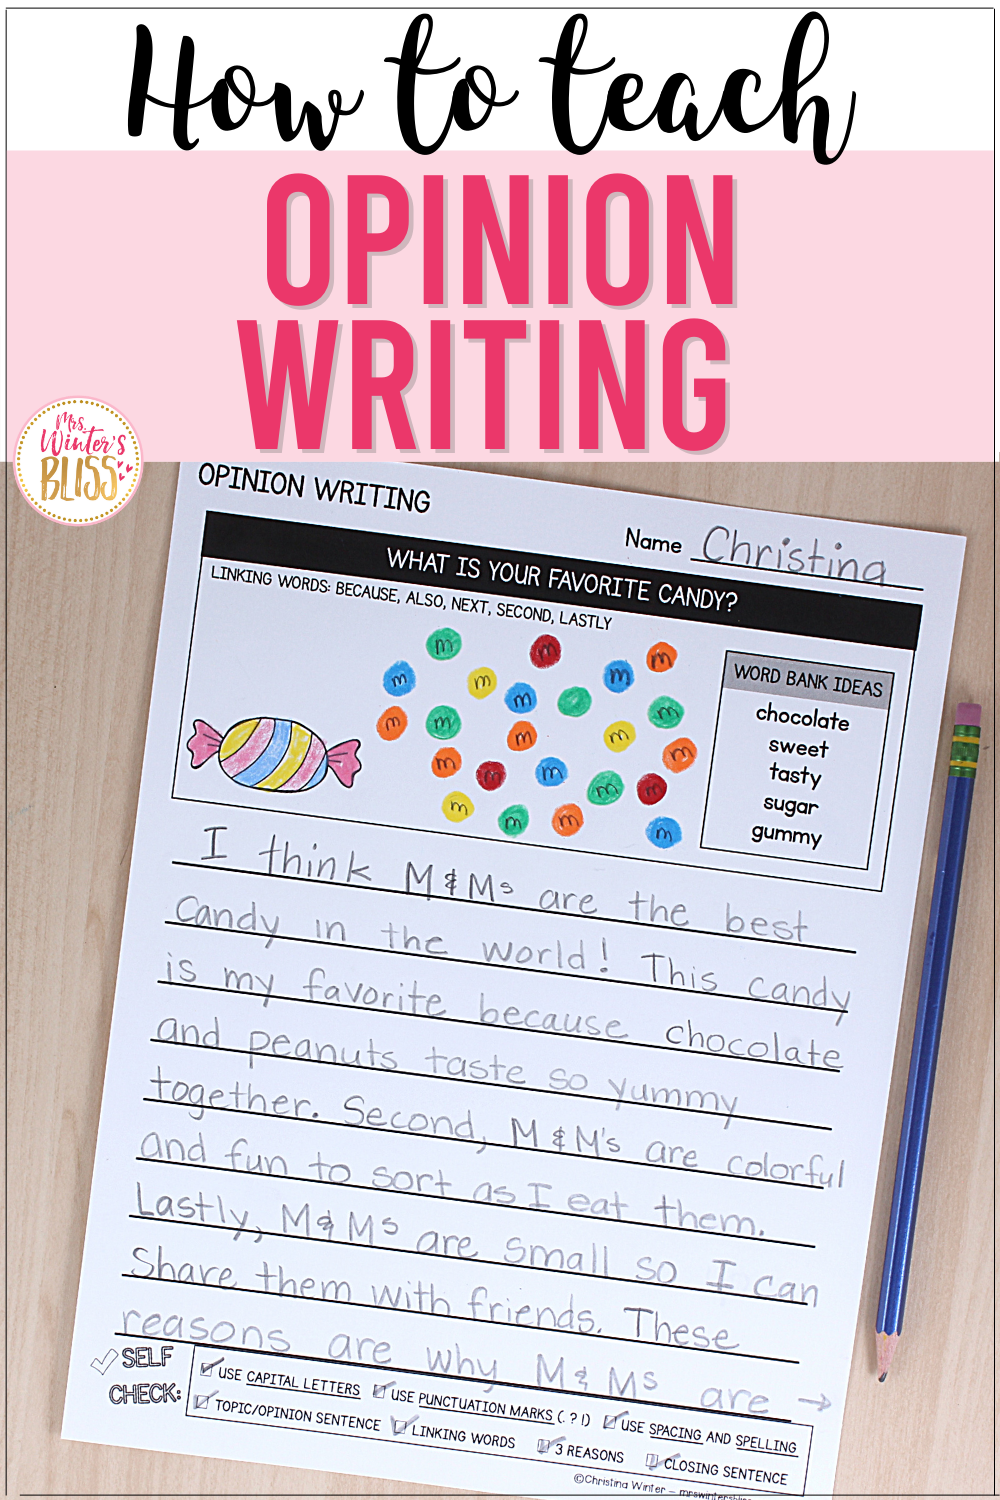 How to teach
OPINION
WRITING
Mrs.
Winter's
BLISS
OPINION WRITING
Name Christina
WHAT IS YOUR FAVORITE CANDY?
LINKING WORDS: BECAUSE, ALSO, NEXT, SECOND, LASTLY
m m m
m m m
m m
m m m m
m m
m m m m m
m m m m
WORD BANK IDEAS
chocolate
sweet
tasty
sugar
gummy
I think M & Ms are the best
candy in the world! This candy
is my favorite because chocolate
and peanuts taste so yummy
together. Second, M & M's are colorful
and fun to sort as I eat them.
Lastly, M & Ms are small so I can
Share them with friends. These
reasons are why M & Ms are →
SELF
CHECK:
USE CAPITAL LETTERS USE PUNCTUATION MARKS (. ? !) USE SPACING AND SPELLING
TOPIC/OPINION SENTENCE LINKING WORDS 3 REASONS CLOSING SENTENCE
©Christina Winter –